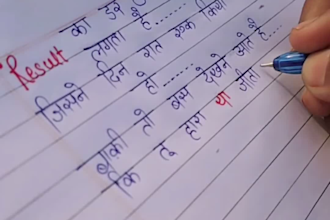 Result का डर
लगता है......
जिसने दिन रात एक किया
हो.......
बाकी तो बस देखने आते है...
कि तू हारा या जीता